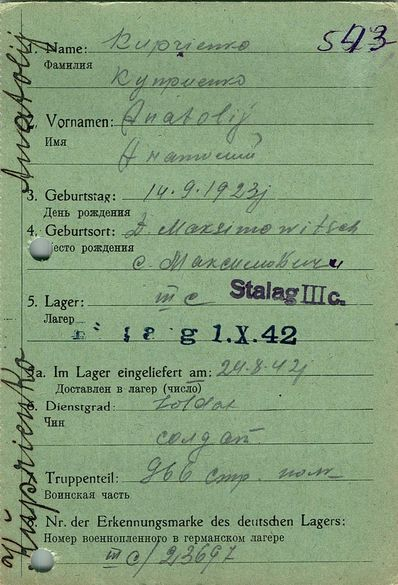 543
1. Name: Kuprienko
Фамилия
Куприенко
2. Vornamen: Anatolij
Имя
Анатолий
3. Geburtstag: 14.9.1923j
День рождения
4. Geburtsort: D. Maksimowitsch
Место рождения
с. Максимовичи
5. Lager: III c Stalag III c.
Лагер
g 1.X.42
5a. Im Lager eingeliefert am: 24.8.42j
Доставлен в лагер (число)
6. Dienstgrad: Soldat
Чин
солдат
Truppenteil: 966 стр. полк
Воинская часть
Nr. der Erkennungsmarke des deutschen Lagers:
Номер военнопленного в германском лагере
III c/ 23697
Kuprienko Anatolij